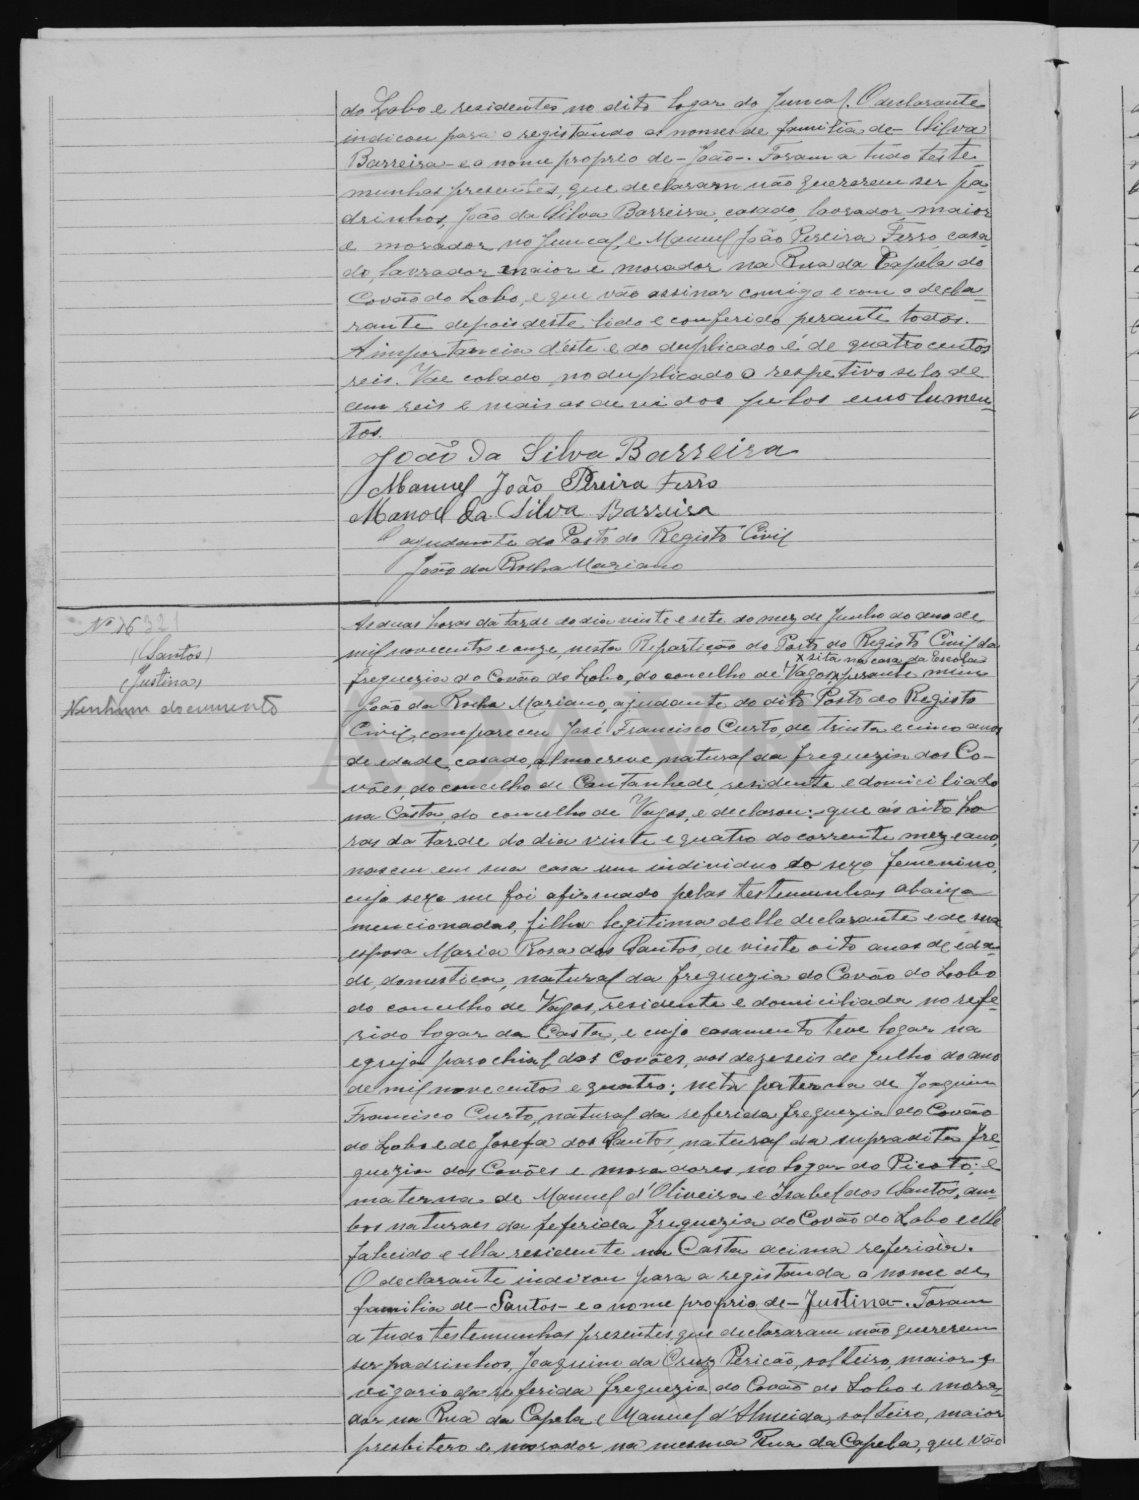 do Lobo e residentes no dito logar do Juncal. O declarante
indicou para o registando os nomes de familia de - Silva
Barreira - e o nome proprio de - João -. Foram a tudo teste-
munhas presentes, que declararam não quererem ser pa-
drinhos, João da Silva Barreira, casado, lavrador, maior
e morador no Juncal, e Manuel João Pereira Ferro, casa-
do, lavrador, maior e morador na Rua da Capela do
Covão do Lobo, e que vão assinar comigo e com o decla-
rante depois deste lido e conferido perante todos.
A importancia d'este e do duplicado é de quatrocentos
reis. Vae colado no duplicado o respetivo selo de
cem reis e mais as devidos pelos emolumen-
tos.
João da Silva Barreira
Manuel João Pereira Ferro
Manoel da Silva Barreira
O ajudante do Posto do Registo Civil
João da Rocha Mariano
Nº 16 321
(Santos)
(Justina)
Nenhum documento
As duas horas da tarde do dia vinte e sete do mez de Junho do ano de
mil novecentos e onze, nesta Repartição do Posto do Registo Civil da
x sita na casa da Escola
freguezia do Covão do Lobo, do concelho de Vagos, x perante mim
João da Rocha Mariano, ajudante do dito Posto do Registo
Civil, compareceu José Francisco Curto, de trinta e cinco anos
de edade, casado, almocreve, natural da freguezia dos Co-
vões, do concelho de Cantanhede, residente e domiciliado
na Casta, do concelho de Vagos, e declarou: que ás oito ho
ras da tarde do dia vinte e quatro do corrente mez e ano,
nasceu em sua casa um individuo do sexo femenino,
cujo sexo me foi afirmado pelas testemunhas abaixo
mencionadas, filha legitima delle declarante e de sua
esposa Maria Rosa dos Santos, de vinte oito anos de eda-
de, domestica, natural da freguezia do Covão do Lobo
do concelho de Vagos, residente e domiciliada no refe-
rido logar da Casta, e cujo casamento teve logar na
egreja parochial dos Covões, aos dezeseis de Julho do ano
de mil novecentos e quatro; neta paterna de Joaquim
Francisco Curto, natural da referida freguezia do Covão
do Lobo e de Josefa dos Santos, natural da supradita fre-
guezia dos Covões e moradores no logar do Picoto; e
materna de Manuel d'Oliveira e Isabel dos Santos, am-
bos naturaes da referida freguezia do Covão do Lobo e elle
falecido e ella residente na Casta acima referida.
O declarante indicou para a registanda o nome de
familia de - Santos - e o nome proprio de - Justina -. Foram
a tudo testemunhas presentes, que declararam não quererem
ser padrinhos, Joaquim da Cruz Pericão, solteiro, maior e
vigario da referida freguezia do Covão do Lobo e mora-
dor na Rua da Capela e Manuel d'Almeida, solteiro, maior
presbitero e morador na mesma Rua da Capela, que vão